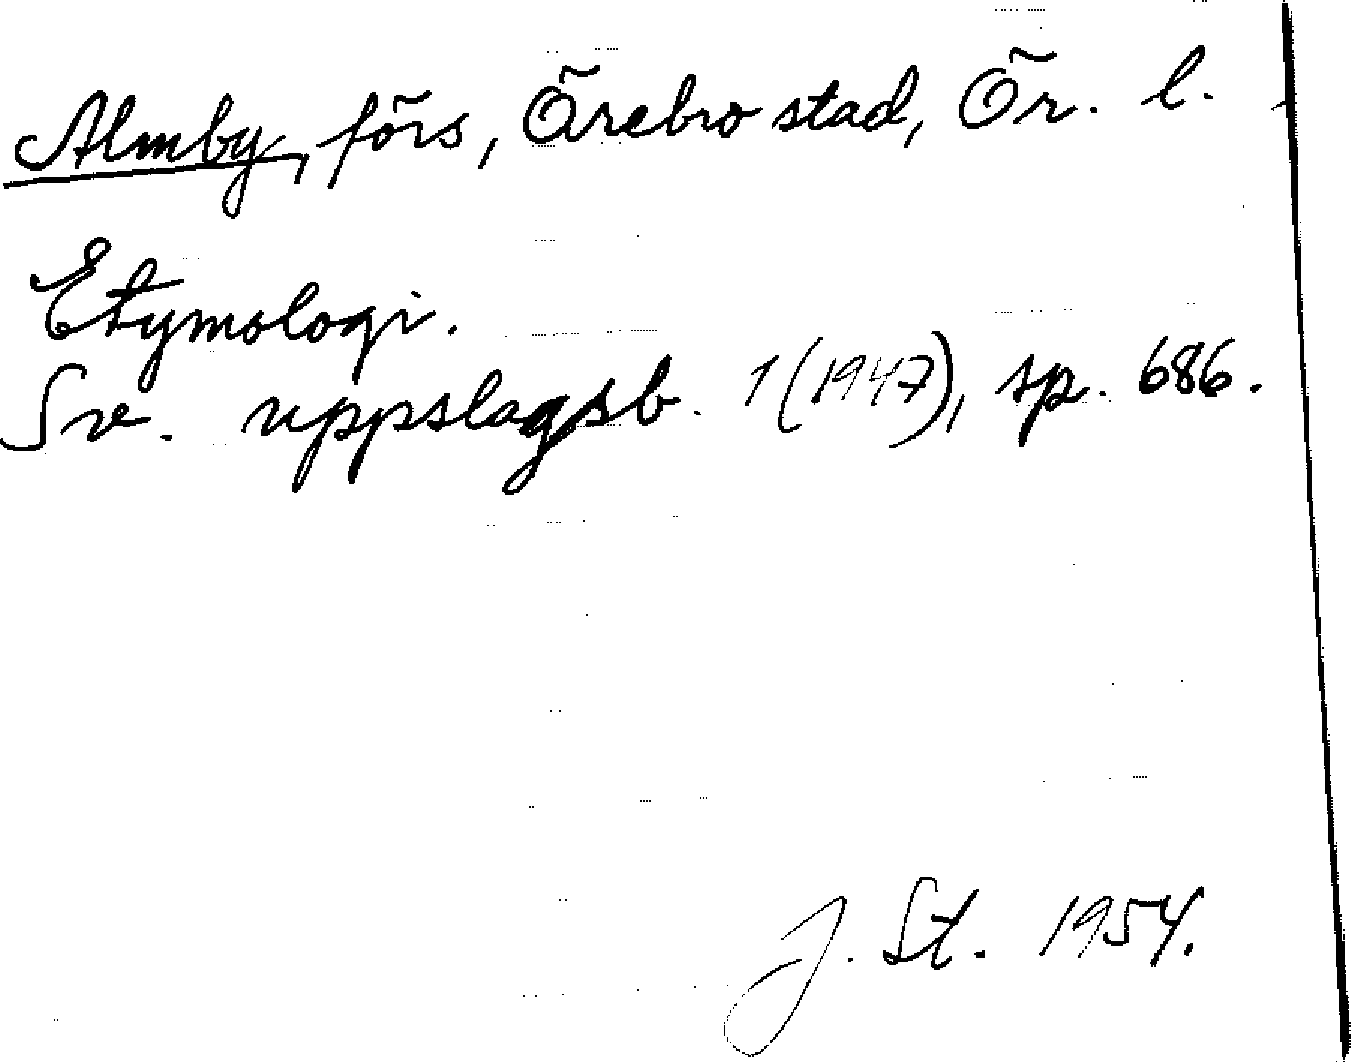 Almby, förs, Örebro stad, Ör. l.
Etymologi.
Sv. uppslagsb. 1 (1947), sp. 686.
J. St. 1954.